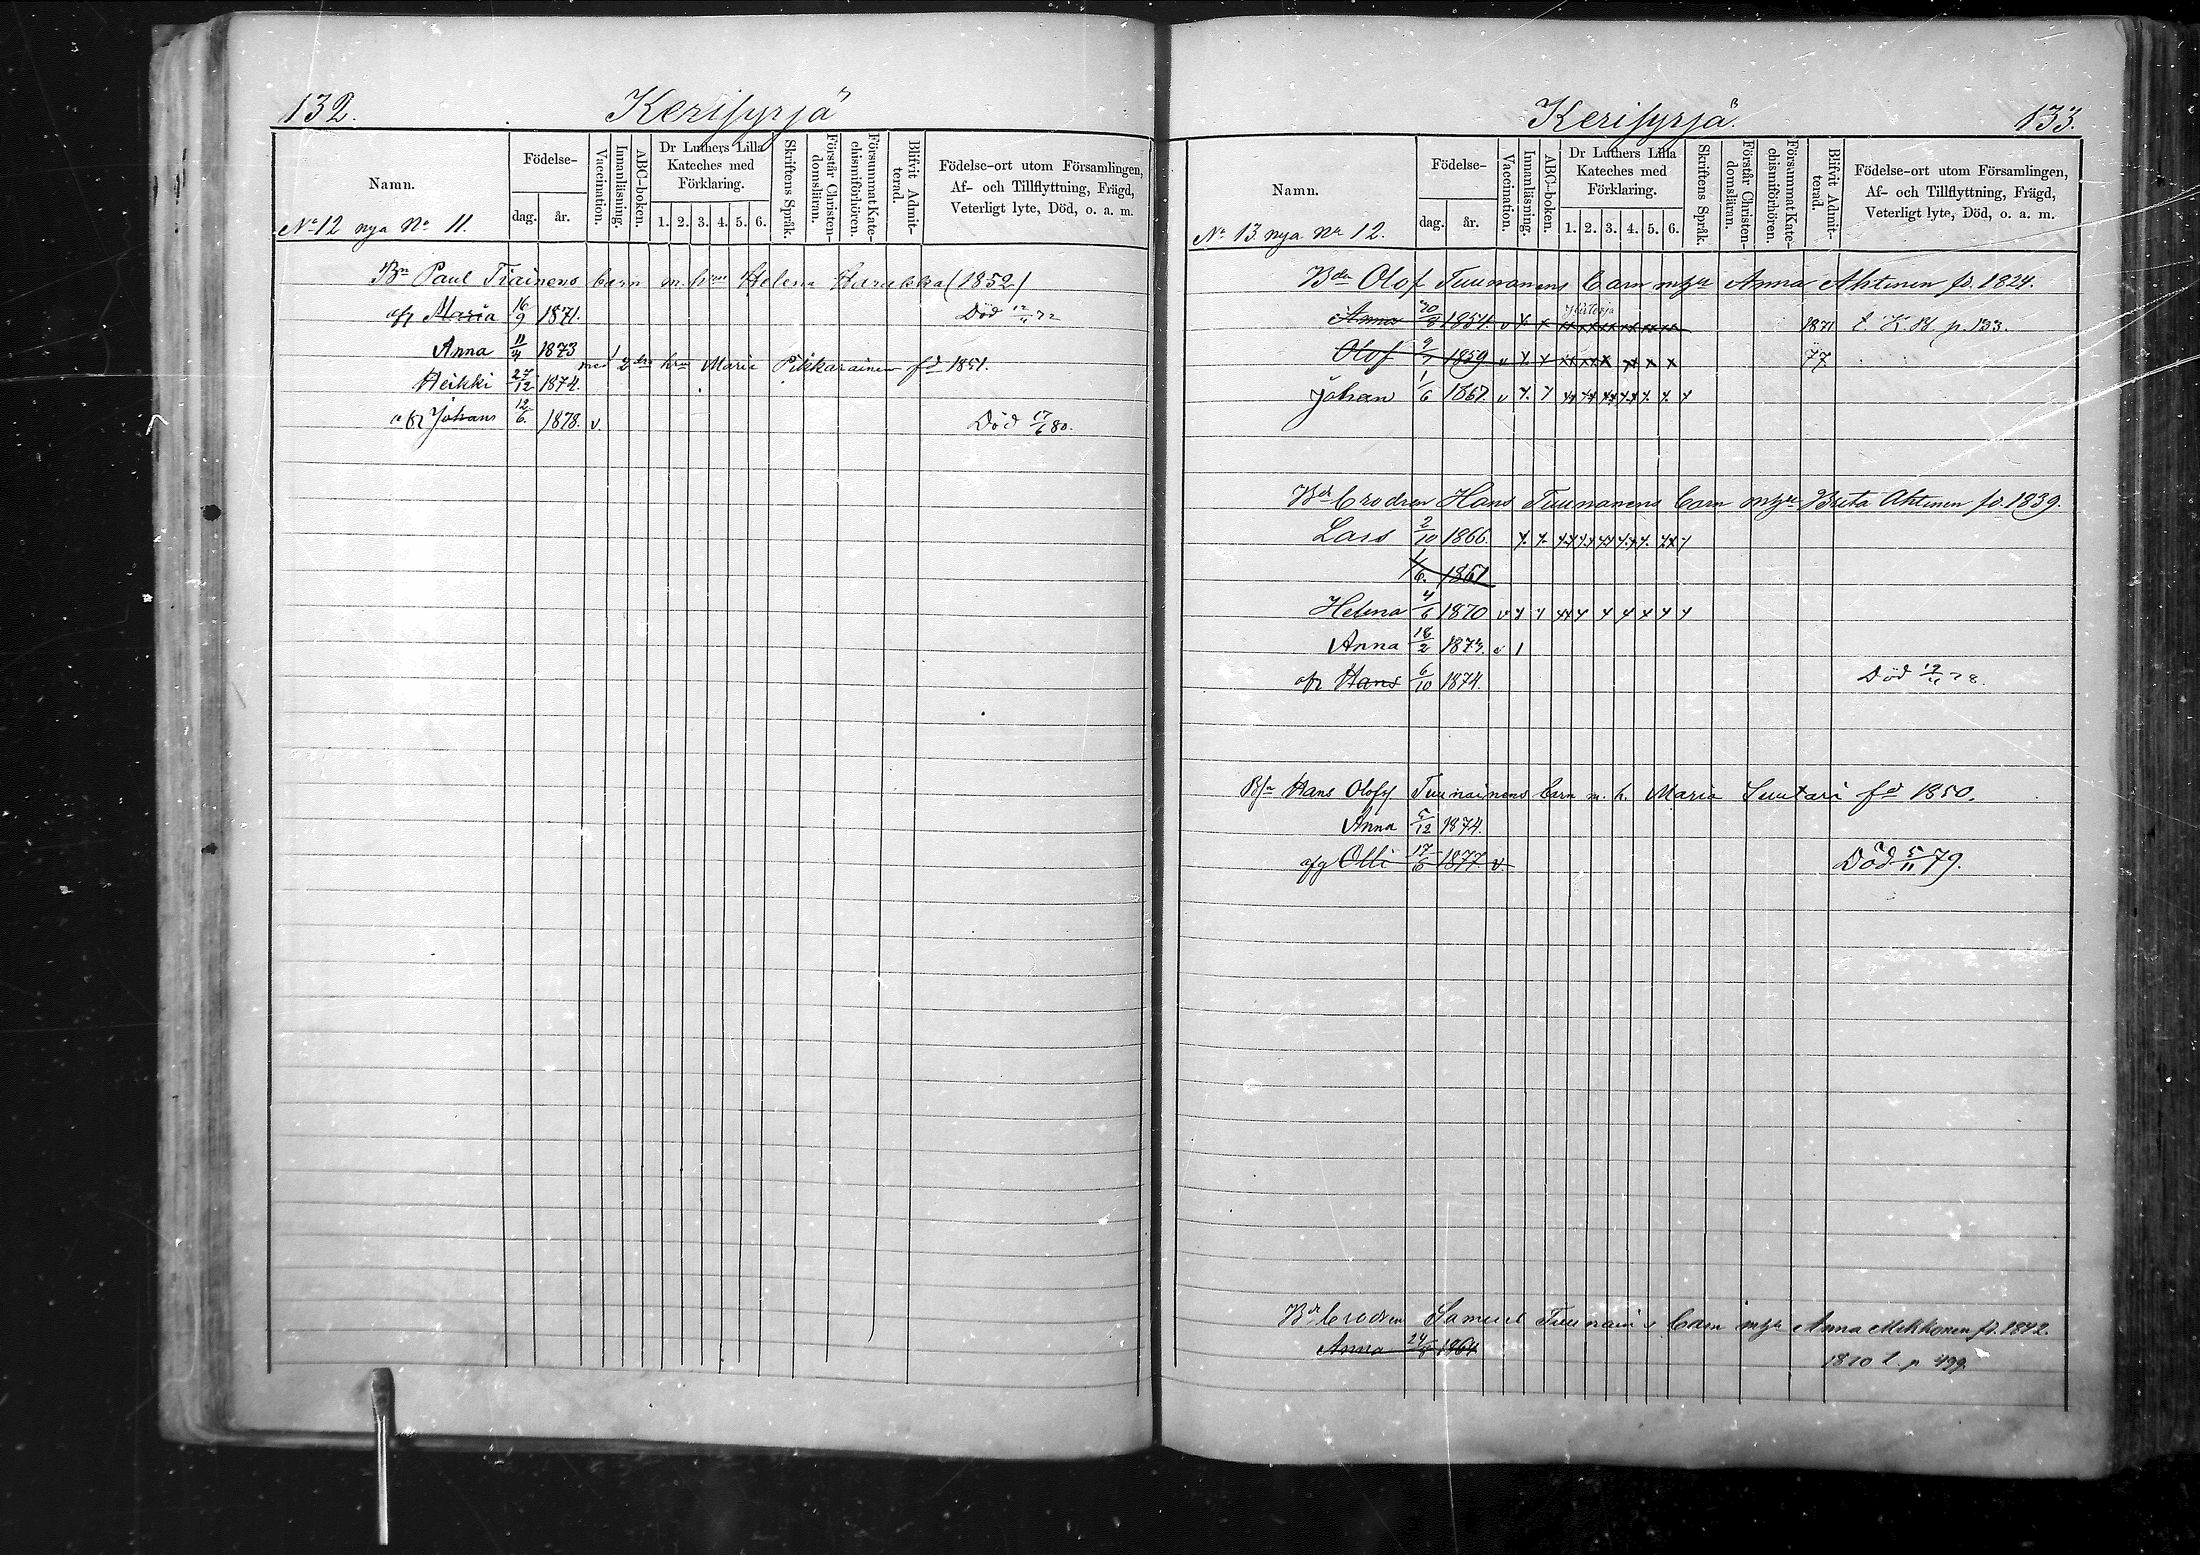 132. Kerisyrjä
Namn. Födelse- dag. år. Vaccination. Innanläsning. ABC-boken. Dr Luthers Lilla Kateches med Förklaring. 1. 2. 3. 4. 5. 6. Skriftens Språk. Förstår Christendomsläran. Försummat Katechismiförhören. Blifvit Admitterad. Födelse-ort utom Församlingen, Af- och Tillflyttning, Frägd, Veterligt lyte, Död, o. a. m.
No 12 nya No 11.
Bn Paul Tiainens barn m. hu Helena Harakka (1852)
afl Maria 16/9 1871. Död 12/11 72
Anna 11/4 1873
med 2dra hu Maria Pikkarainen fd 1851.
Heikki 27/12 1874.
afl Johans 12/6. 1878. v. Död 17/6 80.
Kerisyrjä. 133.
Namn. Födelse- dag. år. Vaccination. Innanläsning. ABC-boken. Dr Luthers Lilla Kateches med Förklaring. 1. 2. 3. 4. 5. 6. Skriftens Språk. Förstår Christendomsläran. Försummat Katechismiförhören. Blifvit Admitterad. Födelse-ort utom Församlingen, Af- och Tillflyttning, Frägd, Veterligt lyte, Död, o. a. m.
No 13. nya No 12.
Bden Olof Tuunanens barn m hu Anna Ahtinen fd. 1824.
Anna 1854. 1871 K. B. p. 133.
Olof 1859 77.
Johan 1/6 1867
Bd brodren Hans Tuunanens barn m hu Brita Ahtinen fd. 1839.
Lars 2/10 1866.
1/6. 1867
Helena 4/6 1870
Anna 18/2 1873.
afl Hans 6/10 1874. Död 78.
Hans Olofss Tuunainens barn m. h. Maria Suutari fd 1850.
Anna 5/12 1874.
afg Olli 17/6 1877 v. Död 5/11 79.
Bd brodren Samuel barn m hu Anna Mikkonen fd. 1842.
Anna 1864
1870 l. p 499.